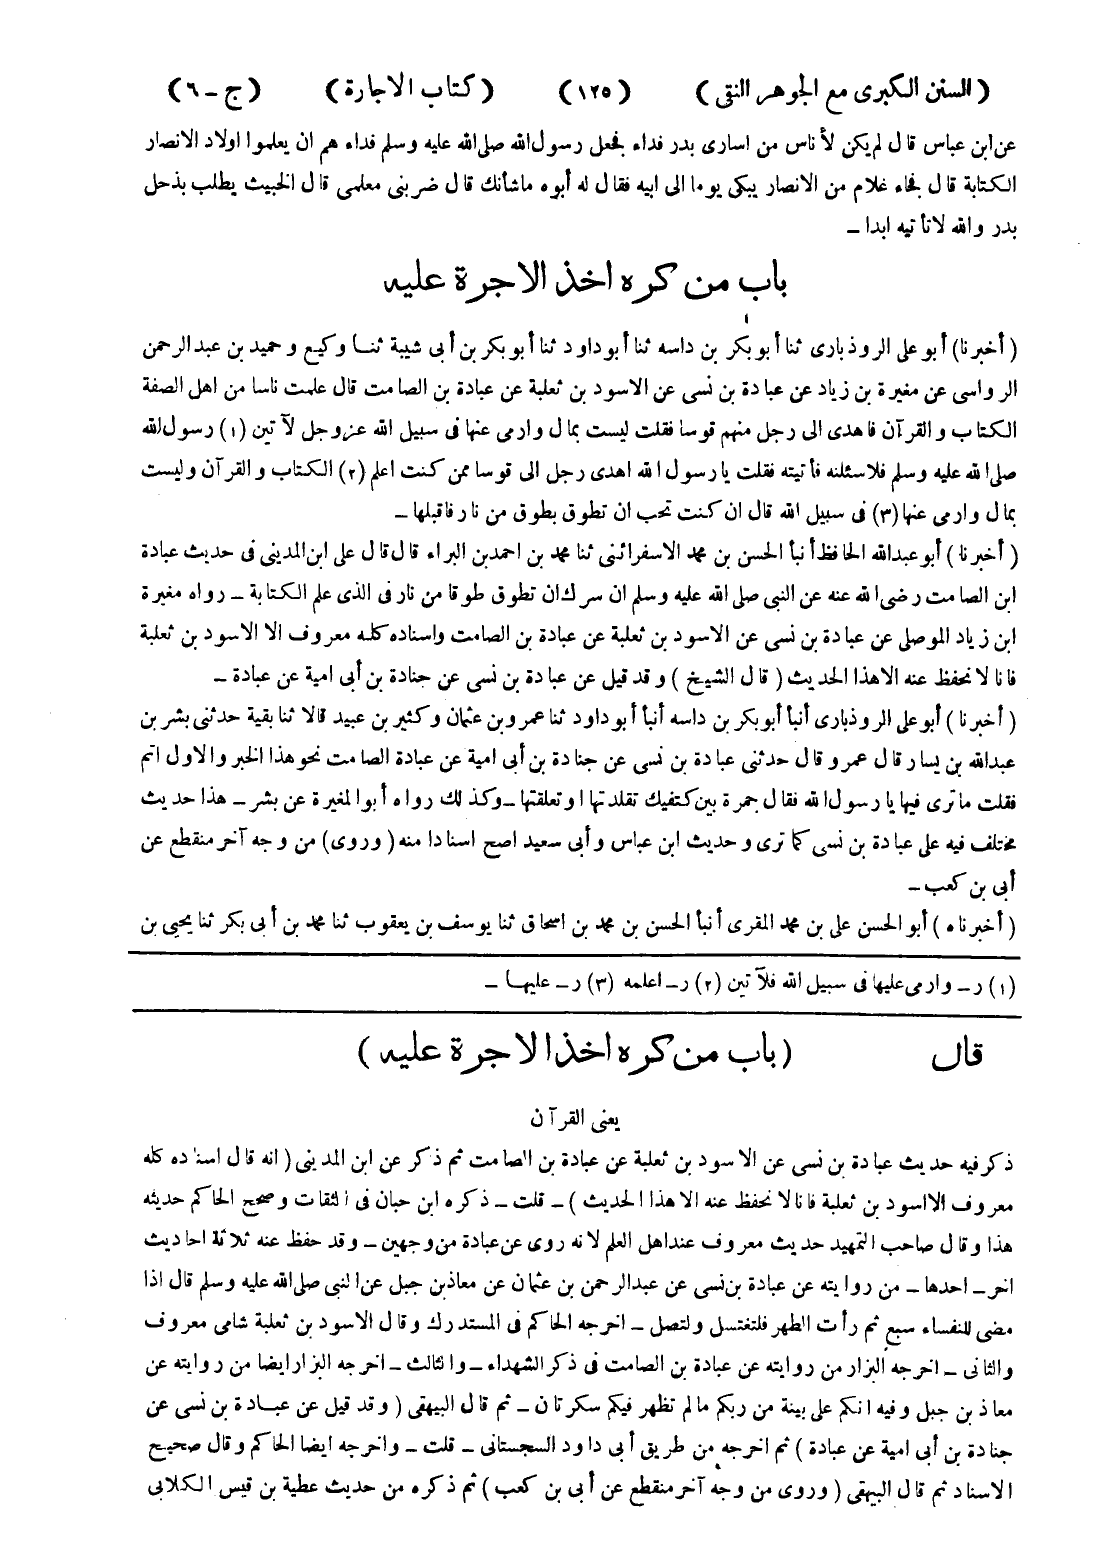 (السنن الكبرى مع الجوهر النقى) (١٢٥) (كتاب الاجارة) (ج-٦)
عن ابن عباس قال لم يكن لأناس من اسارى بدر فداء فجعل رسول الله صلى الله عليه وسلم فداء هم ان يعلموا اولاد الانصار
الكتابة قال فجاء غلام من الانصار يبكى يوما الى ابيه فقال له أبوه ماشأنك قال ضربنى معلمى قال الخبيث يطلب بذحل
بدر والله لا تأتيه ابدا –
باب من كره اخذ الاجرة عليه
(أخبرنا) أبو على الروذبارى ثنا أبو بكر بن داسه ثنا أبو داود ثنا أبو بكر بن أبى شيبة ثنا وكيع وحميد بن عبد الرحمن
الرواسى عن مغيرة بن زياد عن عبادة بن نسى عن الاسود بن ثعلبة عن عبادة بن الصامت قال علمت ناسا من اهل الصفة
الكتاب والقرآن فاهدى الى رجل منهم قوسا فقلت ليست بمال وارمى عنها فى سبيل الله عزوجل لآتين (١) رسول الله
صلى الله عليه وسلم فلاسئلنه فأتيته فقلت يا رسول الله اهدى رجل الى قوسا ممن كنت اعلم (٢) الكتاب والقرآن وليست
بمال وارمى عنها (٣) فى سبيل الله قال ان كنت تحب ان تطوق بطوق من نار فاقبلها –
(أخبرنا) أبو عبدالله الحافظ أنبأ الحسن بن محمد الاسفرائنى ثنا محمد بن احمد بن البراء قال قال على ابن المدينى فى حديث عبادة
ابن الصامت رضى الله عنه عن النبى صلى الله عليه وسلم ان سرك ان تطوق طوقا من نار فى الذى علم الكتابة – رواه مغيرة
ابن زياد الموصلى عن عبادة بن نسى عن الاسود بن ثعلبة عن عبادة بن الصامت واسناده كله معروف الا الاسود بن ثعلبة
فانا لا نحفظ عنه الا هذا الحديث (قال الشيخ) وقد قيل عن عبادة بن نسى عن جنادة بن أبى امية عن عبادة –
(أخبرنا) أبو على الروذبارى أنبأ أبو بكر بن داسه أنبأ أبو داود ثنا عمرو بن عثمان وكثير بن عبيد قالا ثنا بقية حدثنى بشر بن
عبدالله بن يسار قال عمرو قال حدثنى عبادة بن نسى عن جنادة بن أبى امية عن عبادة الصامت نحو هذا الخبر والاول اتم
فقلت ما ترى فيها يا رسول الله فقال جمرة بين كتفيك تقلدتها او تعلقتها – وكذلك رواه أبو المغيرة عن بشر – هذا حديث
مختلف فيه على عبادة بن نسى كما ترى وحديث ابن عباس وأبى سعيد اصح اسنادا منه (وروى) من وجه آخر منقطع عن
أبى بن كعب –
(أخبرناه) أبو الحسن على بن محمد المقرى أنبأ الحسن بن محمد بن اسحاق ثنا يوسف بن يعقوب ثنا محمد بن أبى بكر ثنا يحيى بن
(١) ر – وارمى عليها فى سبيل الله فلآتين (٢) ر – اعلمه (٣) ر – عليها –
قال (باب من كره اخذ الاجرة عليه)
يعنى القرآن
ذكر فيه حديث عبادة بن نسى عن الاسود بن ثعلبة عن عبادة بن الصامت ثم ذكر عن ابن المدينى (انه قال اسناده كله
معروف الا اسود بن ثعلبة فانا لا نحفظ عنه الا هذا الحديث) – قلت – ذكره ابن حبان فى الثقات وصحح الحاكم حديثه
هذا وقال صاحب التمهيد حديث معروف عند اهل العلم لانه روى عن عبادة من وجهين – وقد حفظ عنه ثلاثة احاديث
اخر – احدها – من روايته عن عبادة بن نسى عن عبدالرحمن بن عثمان عن معاذ بن جبل عن النبى صلى الله عليه وسلم قال اذا
مضى للنفساء سبع ثم رأت الطهر فلتغتسل ولتصل – اخرجه الحاكم فى المستدرك وقال الاسود بن ثعلبة شامى معروف
والثانى – اخرجه البزار من روايته عن عبادة بن الصامت فى ذكر الشهداء – والثالث – اخرجه البزار ايضا من روايته عن
معاذ بن جبل وفيه انكم على بينة من ربكم ما لم تظهر فيكم سكرتان – ثم قال البيهقى (وقد قيل عن عبادة بن نسى عن
جنادة بن أبى امية عن عبادة) ثم اخرجه من طريق أبى داود السجستانى – قلت – واخرجه ايضا الحاكم وقال صحيح
الاسناد ثم قال البيهقى (وروى من وجه آخر منقطع عن أبى بن كعب) ثم ذكره من حديث عطية بن قيس الكلابى